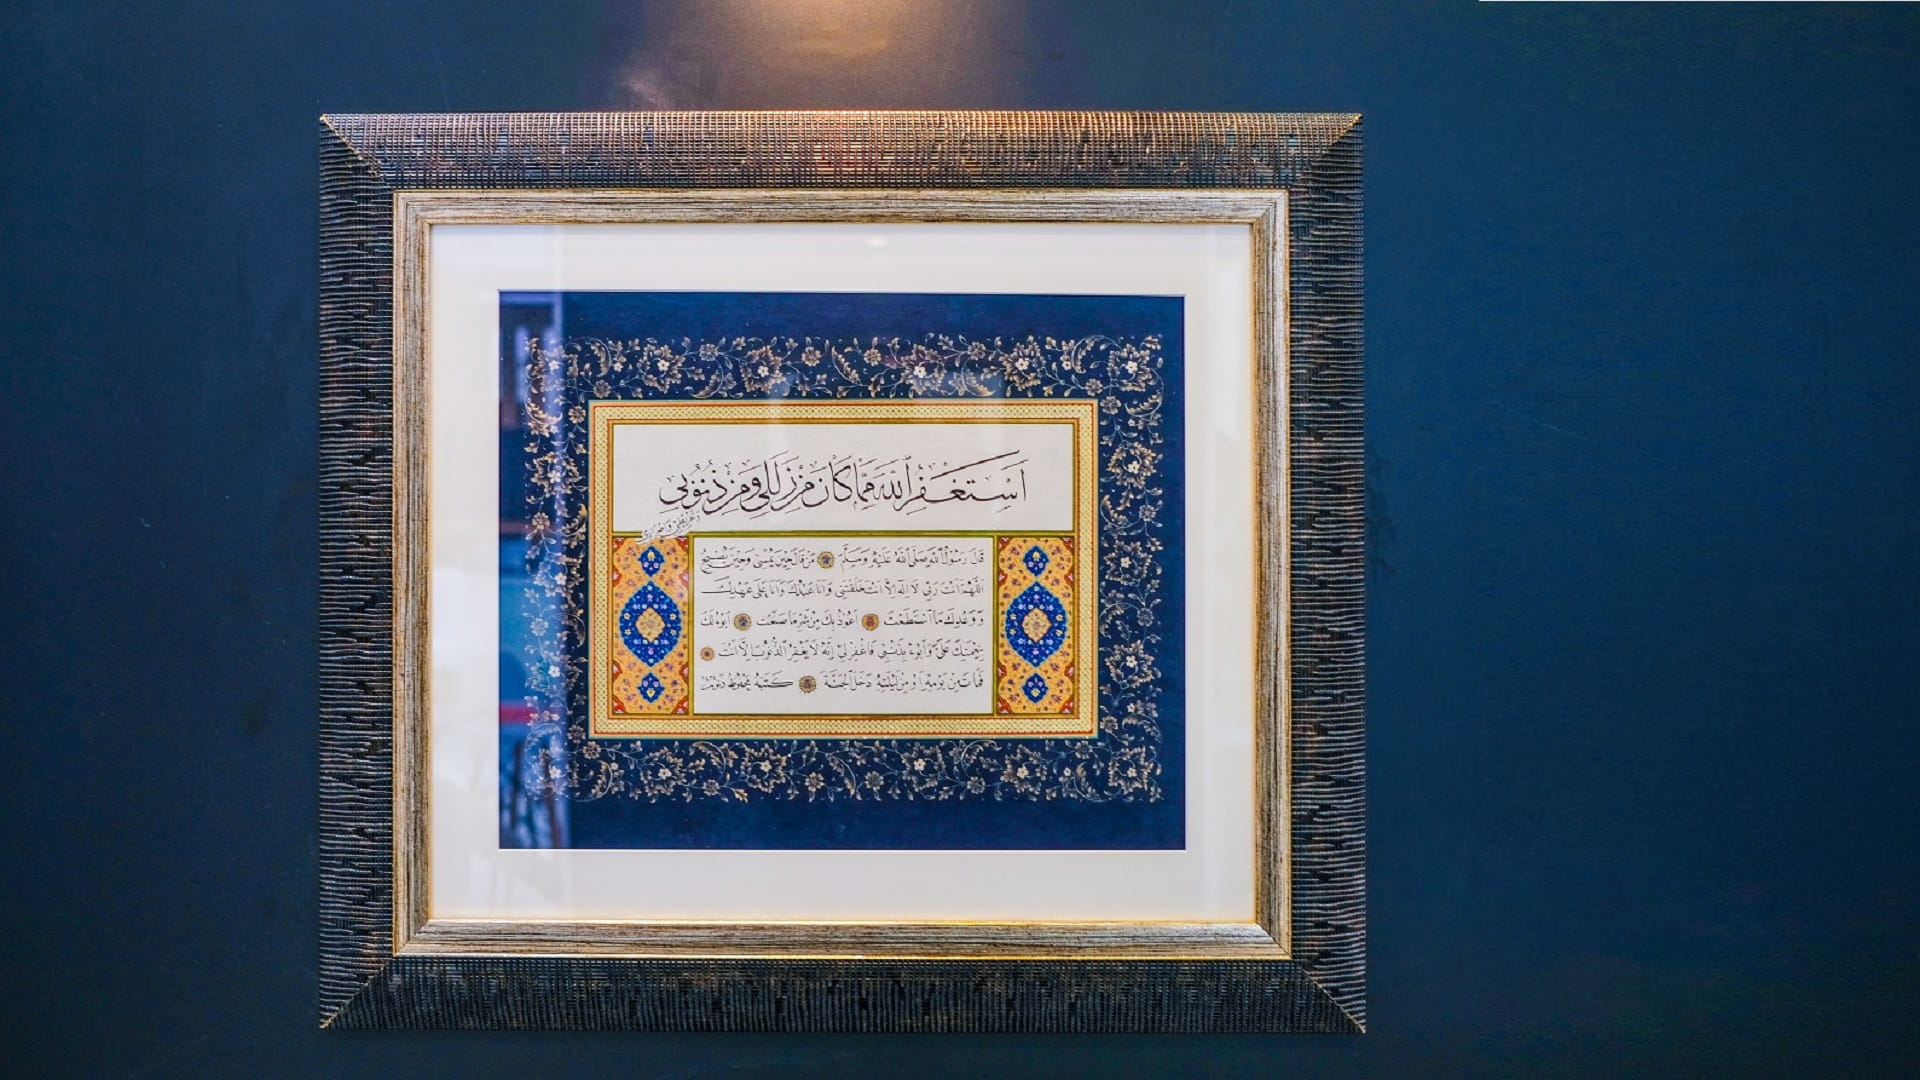 اَسْتَغْفِرُ اللّٰهَ مِمَّا كَانَ مِنْ زَلَلِي وَمِنْ ذُنُوبِي
قَالَ رَسُولُ اللّٰهِ صَلَّى اللّٰهُ عَلَيْهِ وَسَلَّمَ مَنْ قَالَ حِينَ يُمْسِي وَحِينَ يُصْبِحُ
اَللّٰهُمَّ اَنْتَ رَبِّي لَا اِلٰهَ اِلَّا اَنْتَ خَلَقْتَنِي وَاَنَا عَبْدُكَ وَاَنَا عَلَى عَهْدِكَ
وَوَعْدِكَ مَا اسْتَطَعْتُ اَعُوذُ بِكَ مِنْ شَرِّ مَا صَنَعْتُ اَبُوءُ لَكَ
بِنِعْمَتِكَ عَلَيَّ وَاَبُوءُ بِذَنْبِي فَاغْفِرْ لِي اِنَّهُ لَا يَغْفِرُ الذُّنُوبَ اِلَّا اَنْتَ
فَمَاتَ مِنْ يَوْمِهِ اَوْ مِنْ لَيْلَتِهِ دَخَلَ الْجَنَّةَ كَتَبَهُ مَحْفُوظ